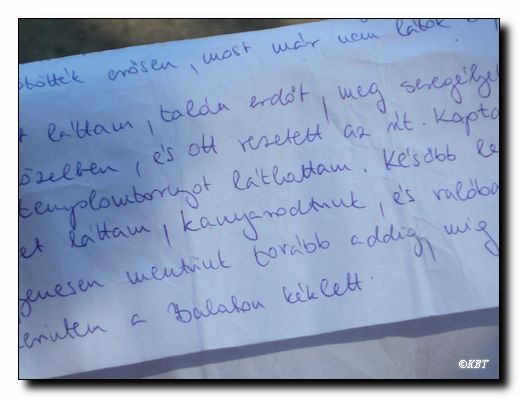 kötötték erősen, most már nem látok
láttam, talán erdőt, meg seregélyek
közelben, és ott vezetett az út. Kapta
templomtornyot láthattam. Később le
et láttam, kanyarodtunk, és valóba
yenesen mentünk tovább addig, míg
a Balaton kéklett.
©KBT